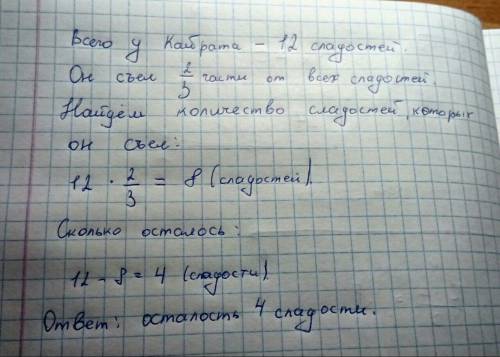 Всего у Кайрата – 12 сладостей.
Он съел 2/3 части от всех сладостей.
Найдём количество сладостей, которых
он съел:
12 · 2/3 = 8 (сладостей).
Сколько осталось:
12 – 8 = 4 (сладости).
Ответ: осталость 4 сладости.